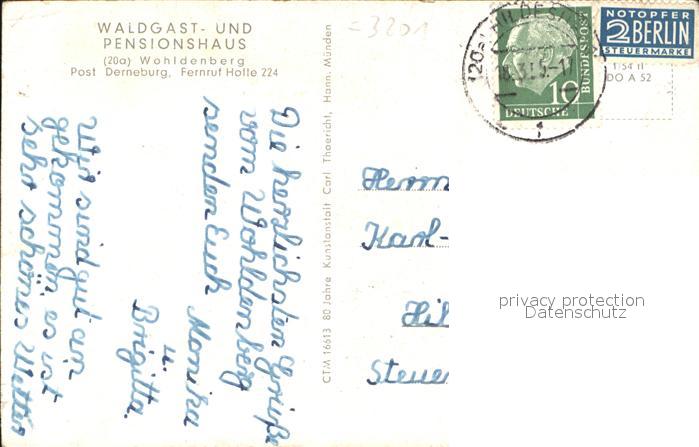 WALDGAST- UND
PENSIONSHAUS
(20a) Wohldenberg
Post Derneburg, Fernruf Holle 224
=3201
Die herzlichsten Grüße
vom Wohldenberg
senden Euch
Monika
u.
Brigitta.
Wir sind gut an
gekommen, es ist
sehr schönes Wetter
CTM 16613 80 Jahre Kunstanstalt Carl Thoericht, Hann. Münden
NOTOPFER
2 BERLIN
STEUERMARKE
10
DEUTSCHE
BUNDESPOST
(20a) HILDES
1
1/54 II
DO A 52
Herrn
Karl-
Hil
Steuer
privacy protection
Datenschutz